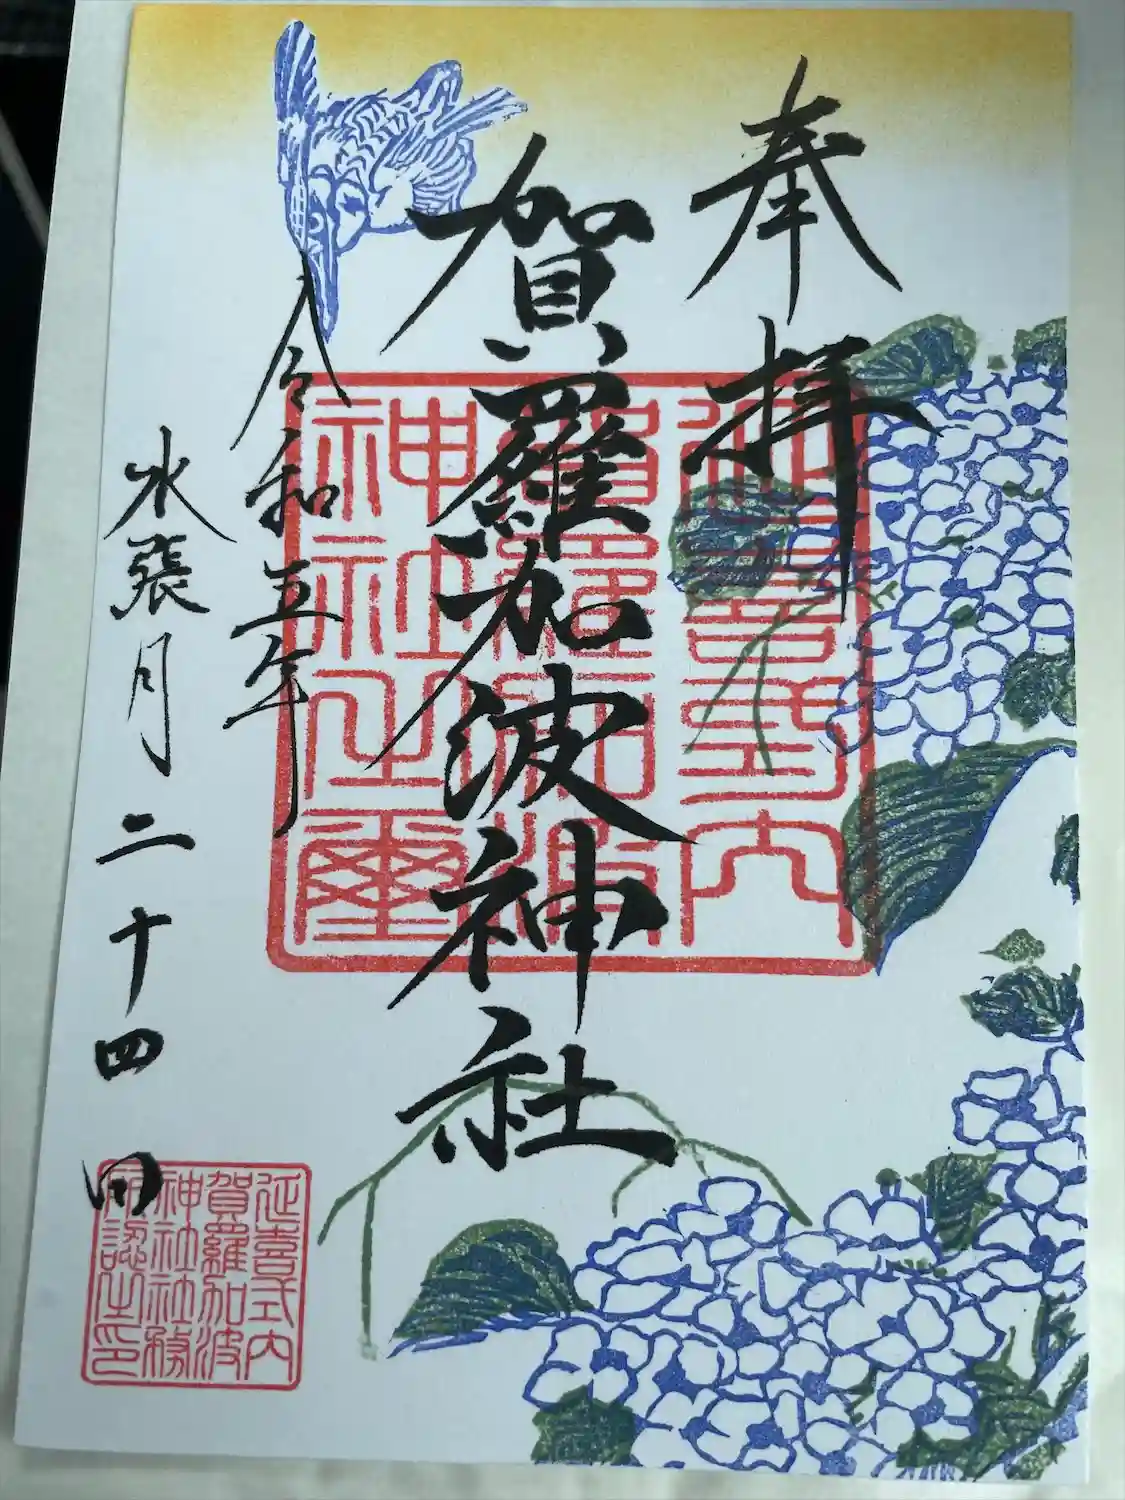 奉拝
賀羅加波神社
令和五年
水張月二十四日
延喜式内
賀羅加波
神社之璽
延喜式内
賀羅加波
神社社務
所認之印